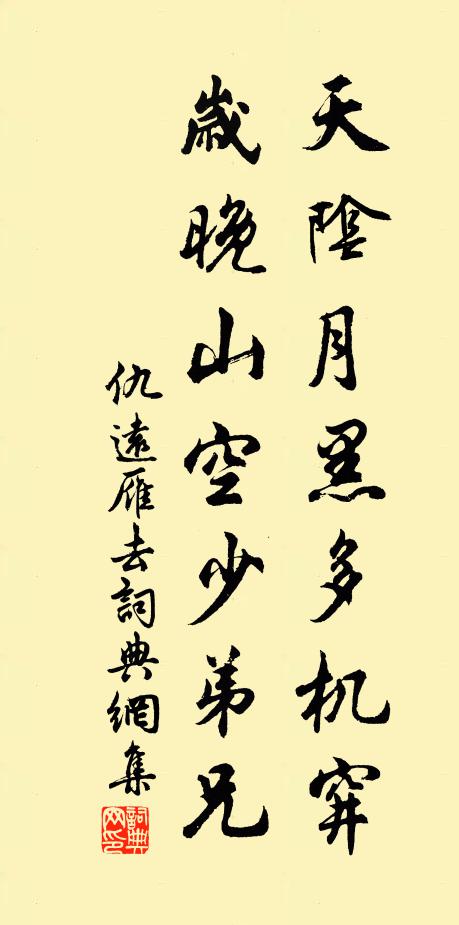 天陰月黑多机穽
歲晚山空少弟兄
仇遠雁去詞典網集
詞典網印